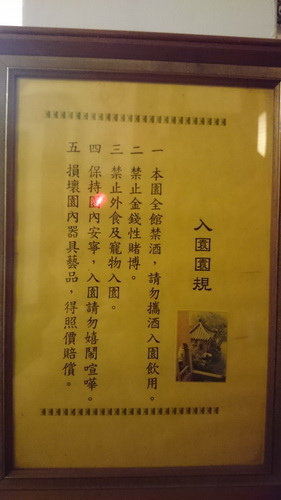 入園園規
一 本園全館禁酒，請勿攜酒入園飲用。
二 禁止金錢性賭博。
三 禁止外食及寵物入園。
四 保持園內安寧，入園請勿嬉鬧喧嘩。
五 損壞園內器具藝品，得照價賠償。